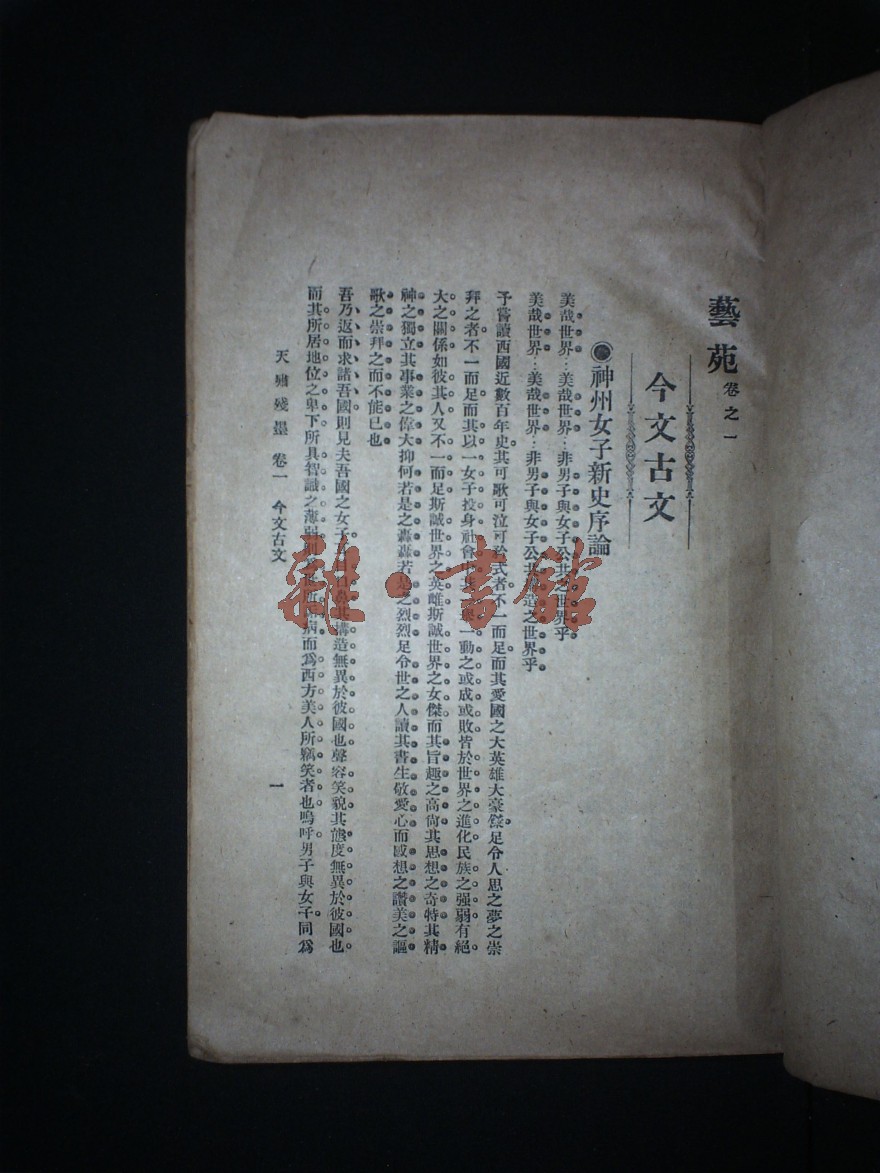 藝苑 卷之一
今文古文
神州女子新史序論
美哉世界…美哉世界…非男子與女子公共之世界乎
美哉世界…美哉世界…非男子與女子公共造之世界乎
予嘗讀西國近數百年史其可歌可泣可矜式者不一而足而其愛國之大英雄大豪傑足令人思之夢之崇
拜之者不一而足而其以一女子投身社會一動之或成或敗皆於世界之進化民族之强弱有絕
大之關係如彼其人又不一而足斯誠世界之英雌斯誠世界之女傑而其旨趣之高尙其思想之奇特其精
神之獨立其事業之偉大抑何若是之轟轟若是之烈烈足令世之人讀其書生敬愛心而感想之讚美之謳
歌之崇拜之而不能已也
吾乃返而求諸吾國則見夫吾國之女子構造無異於彼國也聲容笑貌其態度無異於彼國也
而其所居地位之卑下所具智識之薄弱病而爲西方美人所竊笑者也嗚呼男子與女子同爲
天嘯殘墨 卷一 今文古文
一
雜·書館